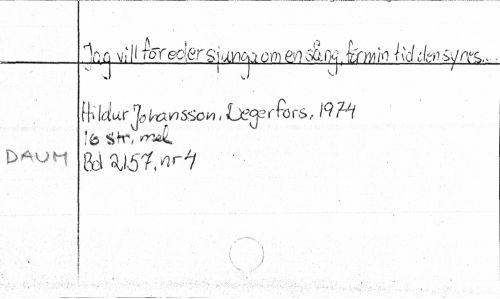 Jag vill för eder sjunga om en sång, för min tid den synes...
Hildur Johansson, Degerfors, 1974
16 str, mel
DAUM Bd 2157, nr 4